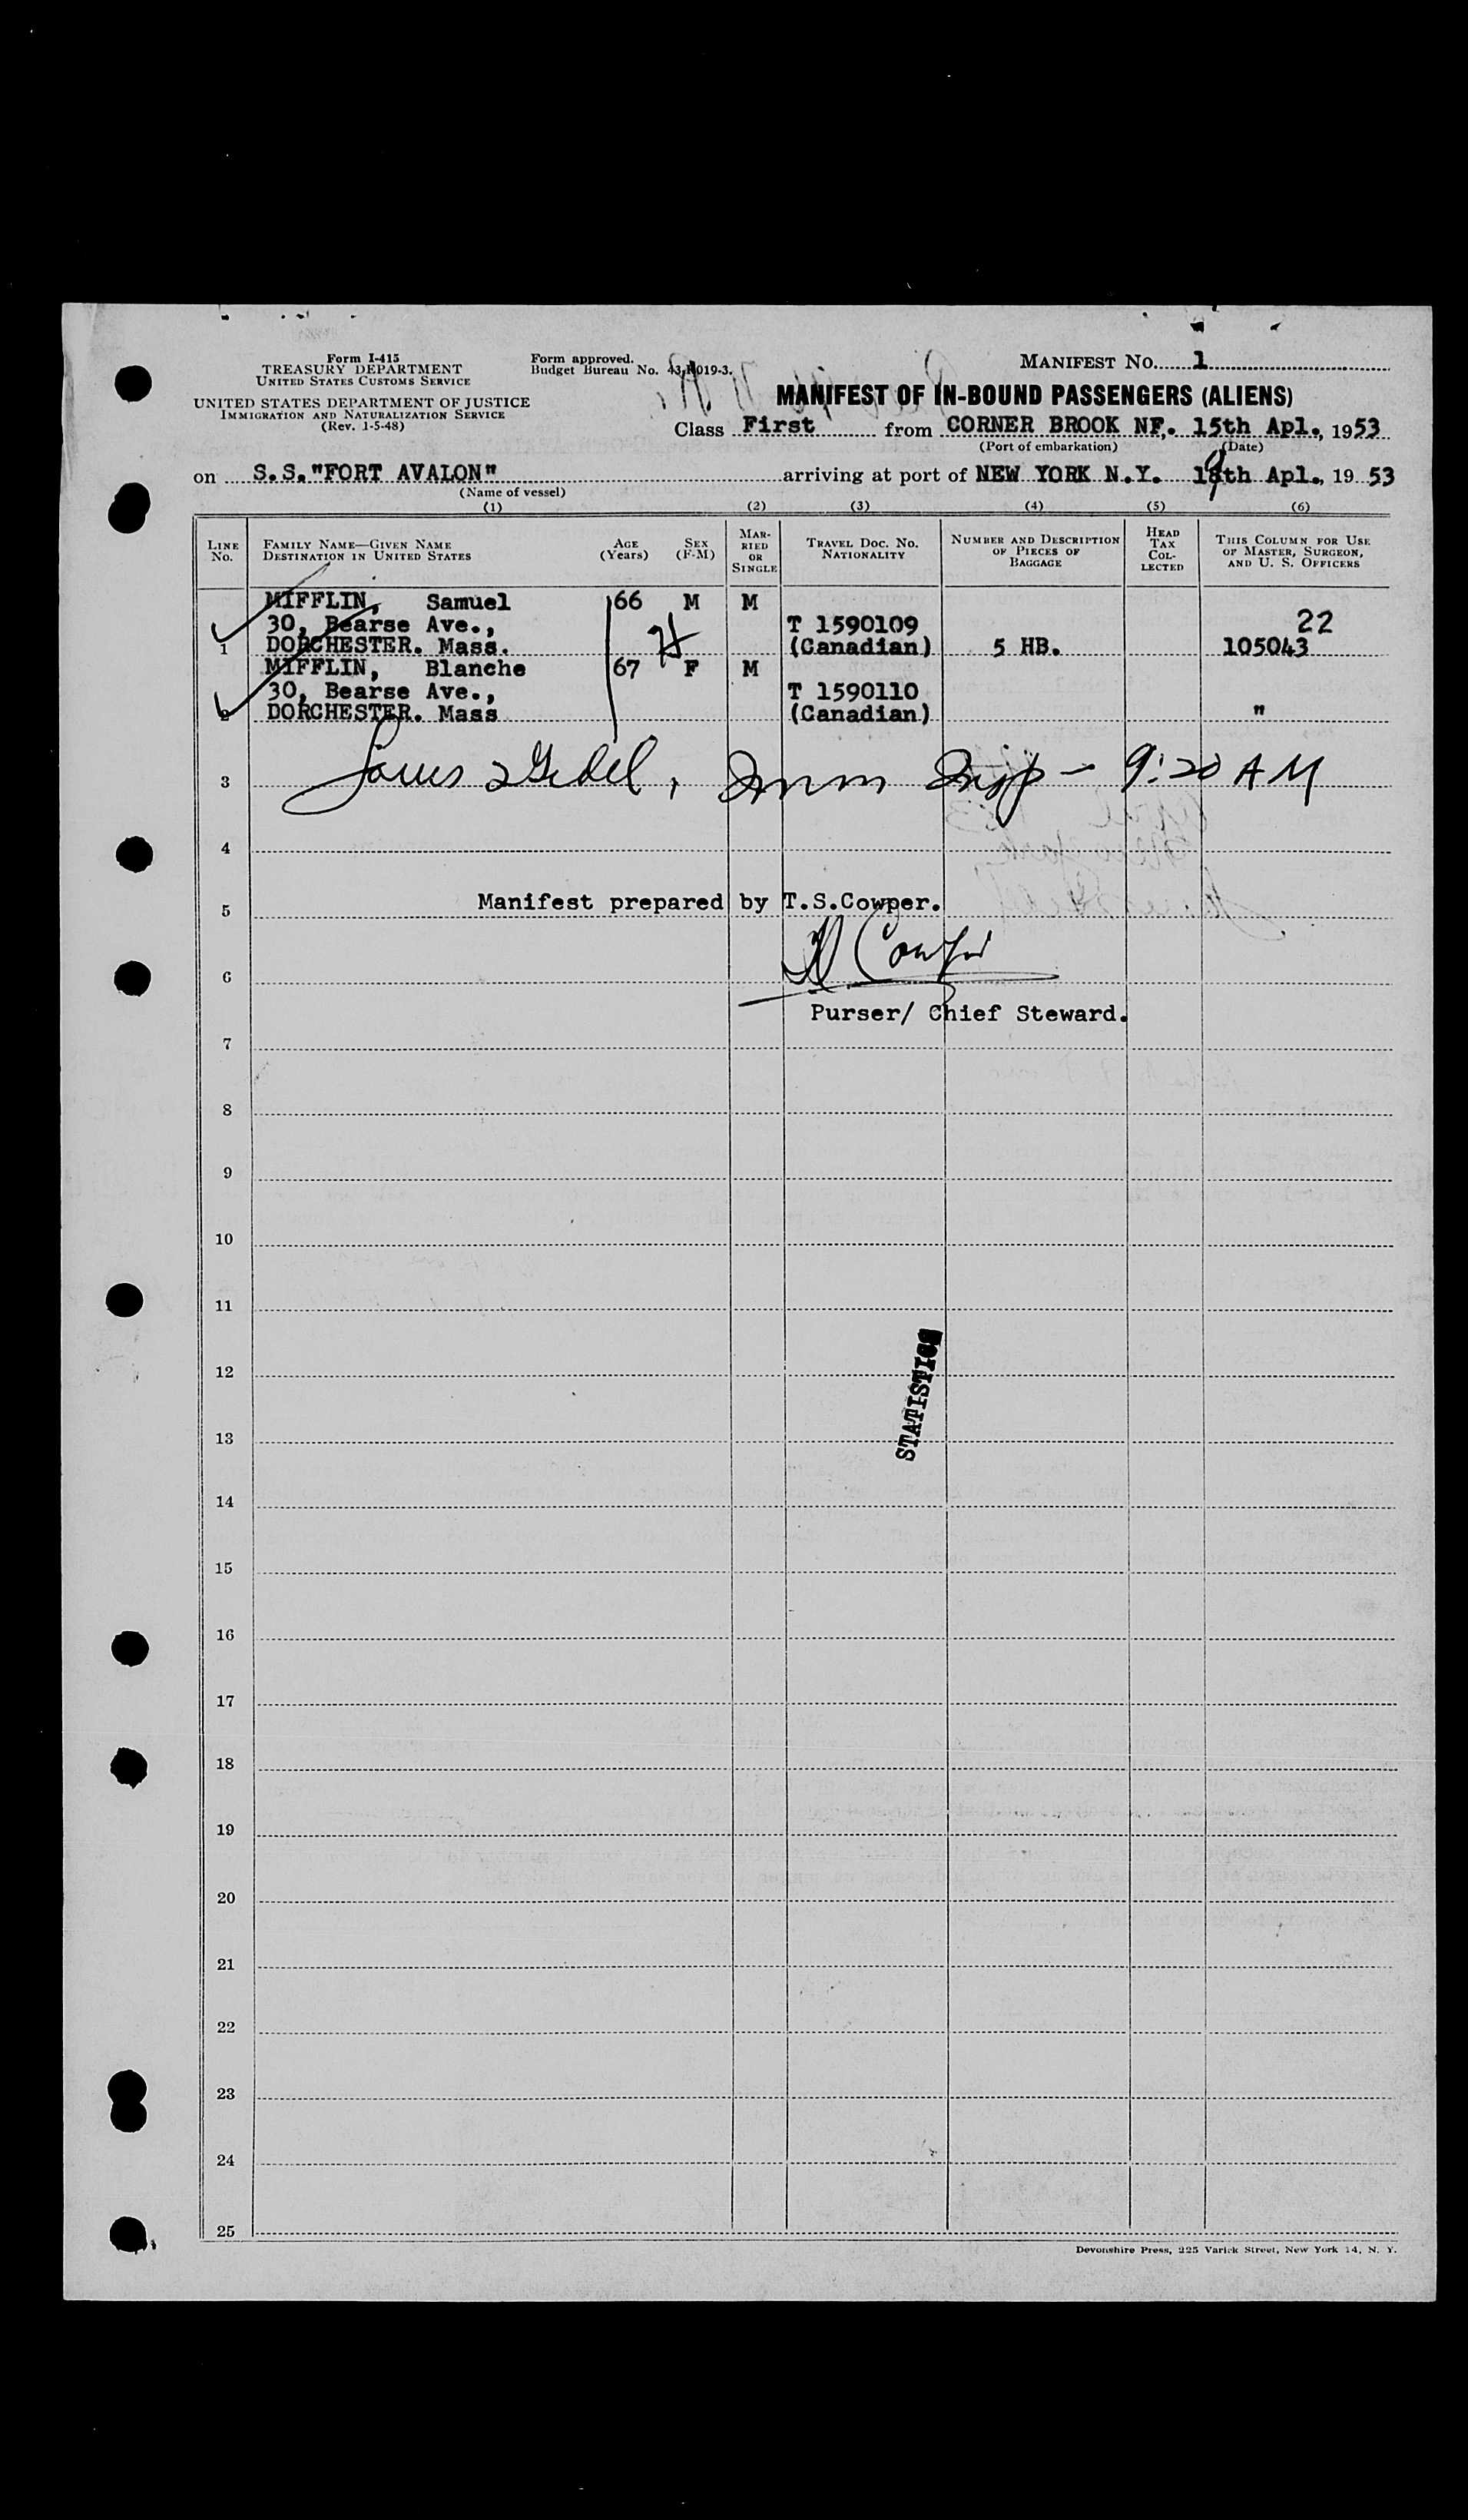 Form I-415
TREASURY DEPARTMENT
UNITED STATES CUSTOMS SERVICE
UNITED STATES DEPARTMENT OF JUSTICE
IMMIGRATION AND NATURALIZATION SERVICE
(Rev. 1-5-48)
Form approved.
Budget Bureau No. 43-R019-3.
MANIFEST NO. 1
MANIFEST OF IN-BOUND PASSENGERS (ALIENS)
Class First from CORNER BROOK NF. 15th Apl., 1953
(Port of embarkation) (Date)
on S.S."FORT AVALON" arriving at port of NEW YORK N.Y. 19th Apl., 19 53
(Name of vessel)
(1) (2) (3) (4) (5) (6)
LINE NO.
FAMILY NAME—GIVEN NAME
DESTINATION IN UNITED STATES
AGE (Years)
SEX (F-M)
MARRIED OR SINGLE
TRAVEL DOC. NO.
NATIONALITY
NUMBER AND DESCRIPTION OF PIECES OF BAGGAGE
HEAD TAX COLLECTED
THIS COLUMN FOR USE OF MASTER, SURGEON, AND U. S. OFFICERS
MIFFLIN, Samuel 66 M M
30, Bearse Ave., T 1590109 22
1 DORCHESTER. Mass. (Canadian) 5 HB. 105043
MIFFLIN, Blanche 67 F M
30, Bearse Ave., T 1590110
2 DORCHESTER. Mass (Canadian) "
3 Immn Insp - 9:20 AM
4
Manifest prepared by T.S.Cowper.
5
Cowper
6
Purser/ Chief Steward.
7
8
9
10
11
12
STATISTICS
13
14
15
16
17
18
19
20
21
22
23
24
25
Devonshire Press, 225 Varick Street, New York 14, N. Y.